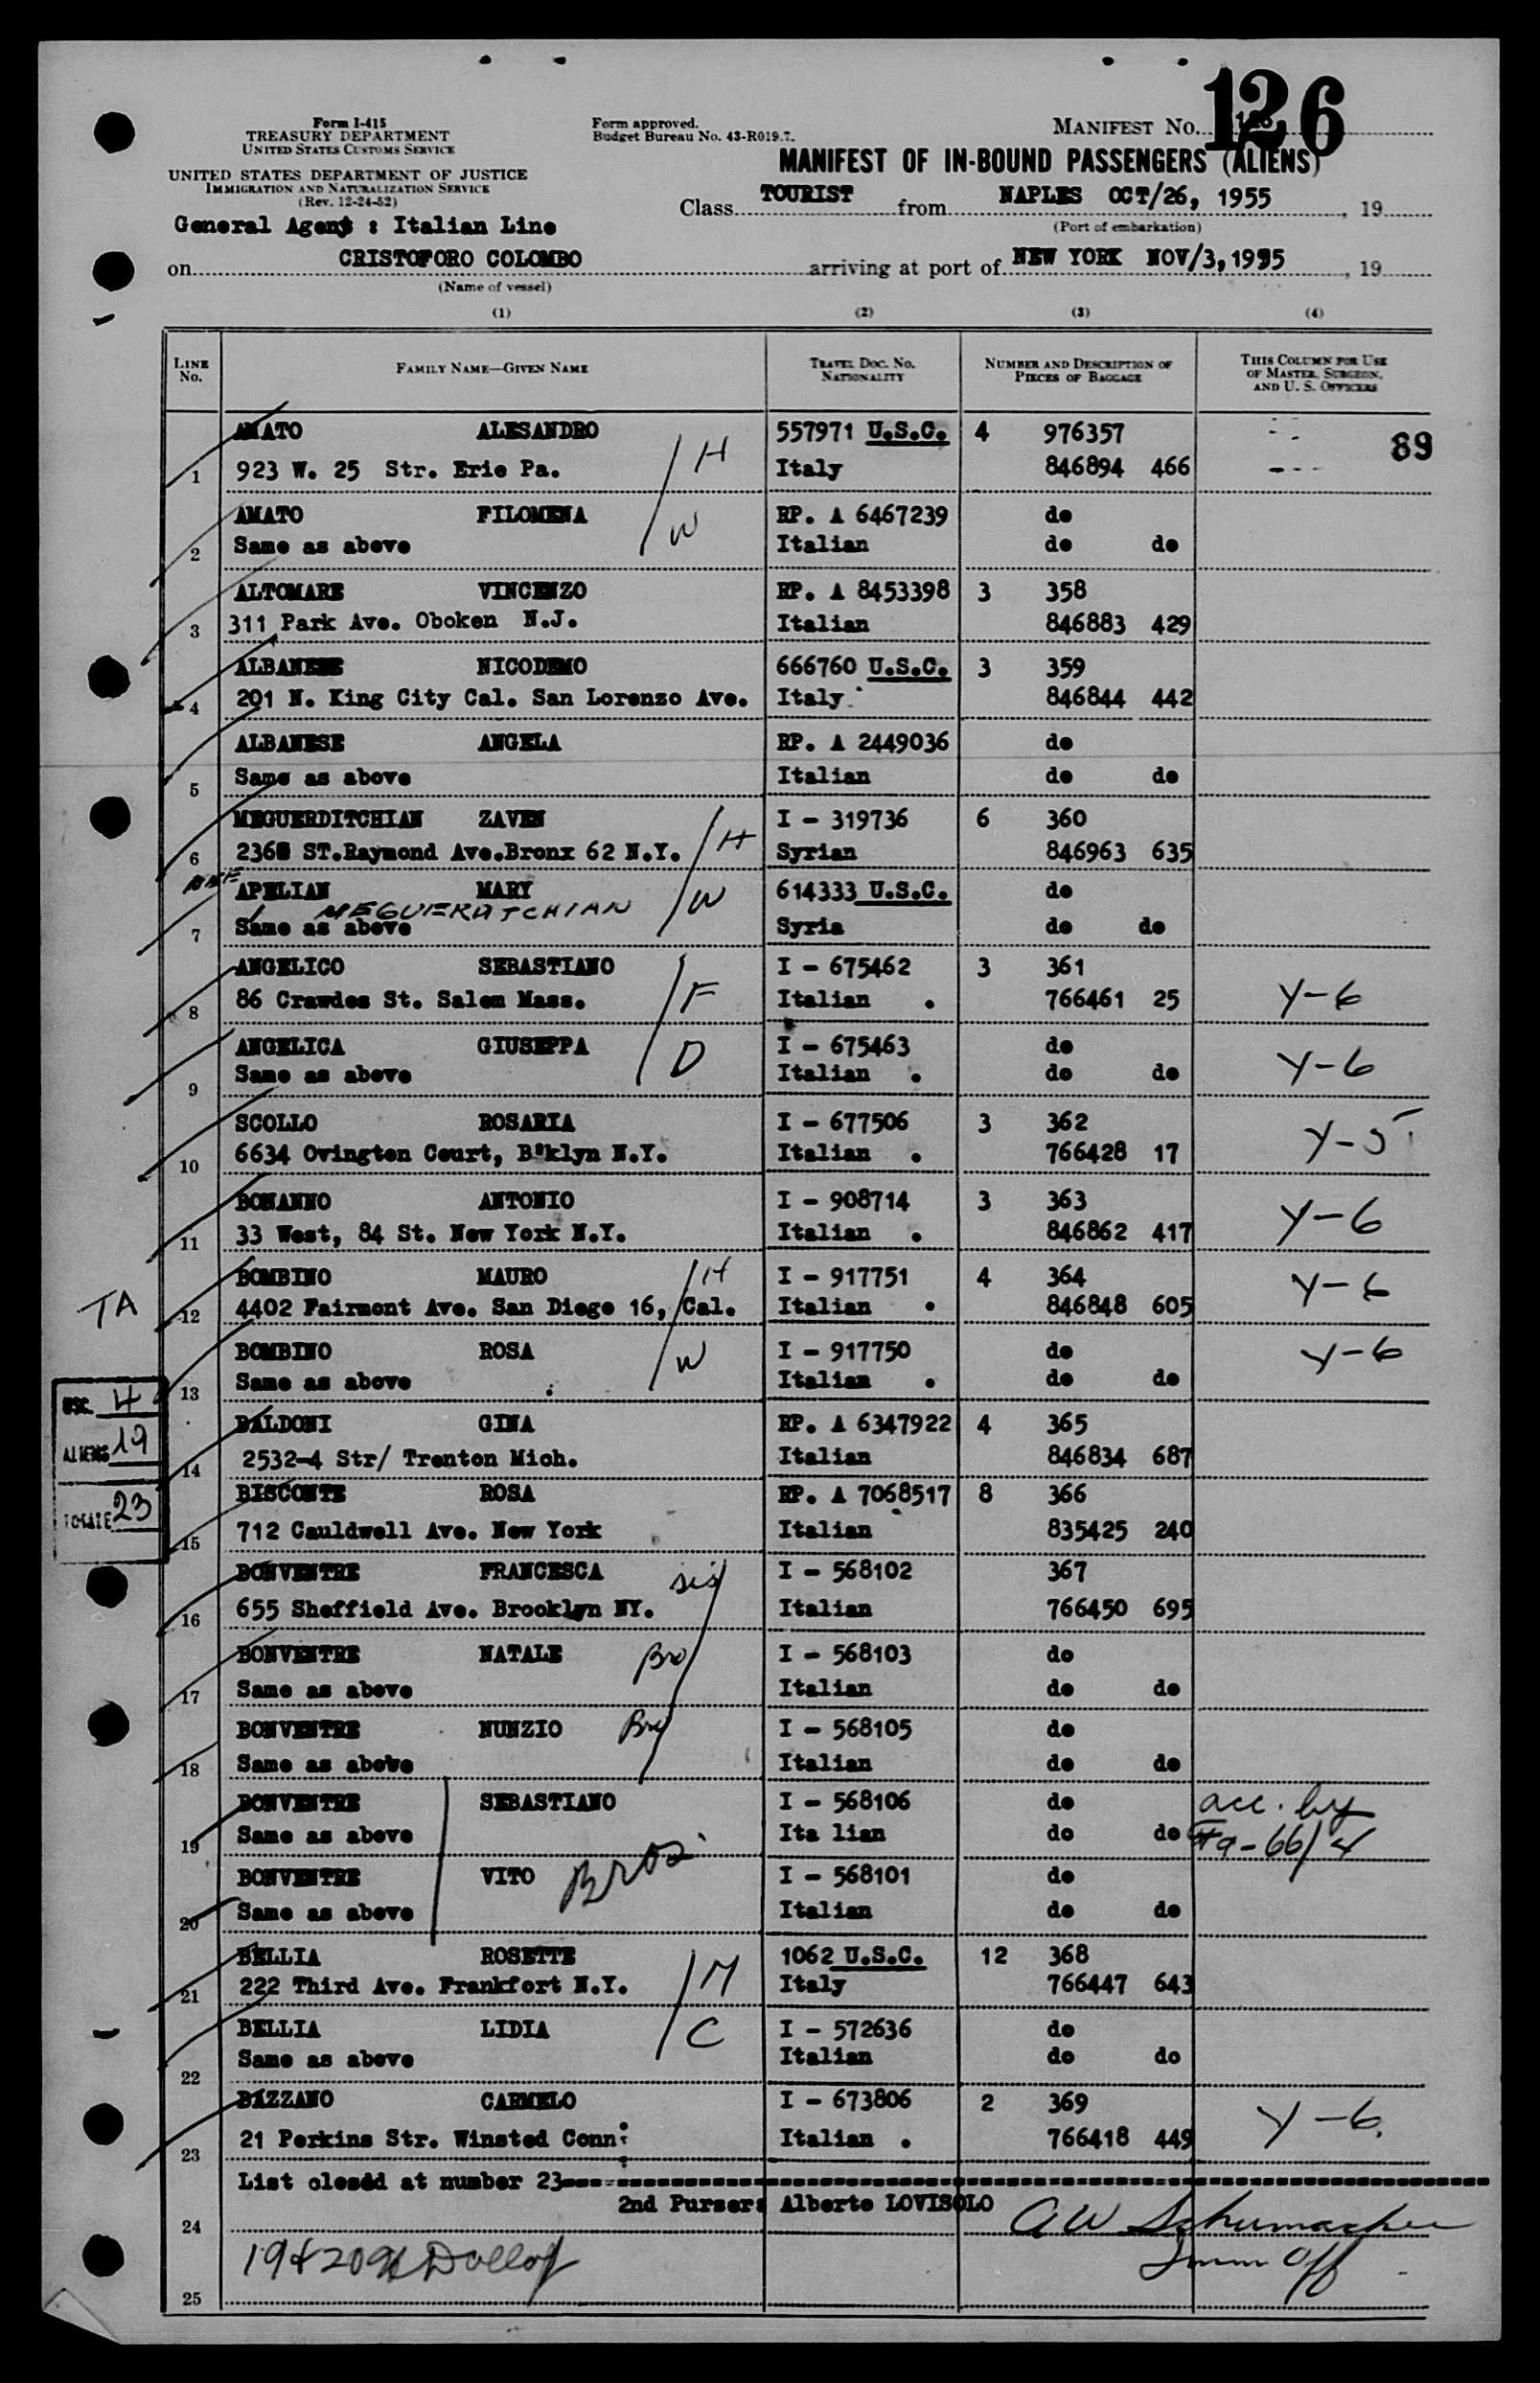 126
Form I-415
TREASURY DEPARTMENT
UNITED STATES CUSTOMS SERVICE
Form approved.
Budget Bureau No. 43-R019.7.
MANIFEST No.
UNITED STATES DEPARTMENT OF JUSTICE
IMMIGRATION AND NATURALIZATION SERVICE
(Rev. 12-24-52)
MANIFEST OF IN-BOUND PASSENGERS (ALIENS)
Class TOURIST from NAPLES OCT/26, 1955, 19
(Port of embarkation)
General Agent : Italian Line
on CRISTOFORO COLOMBO arriving at port of NEW YORK NOV/3, 1955, 19
(Name of vessel)
(1) (2) (3) (4)
LINE No. FAMILY NAME—GIVEN NAME TRAVEL DOC. No. NATIONALITY NUMBER AND DESCRIPTION OF PIECES OF BAGGAGE THIS COLUMN FOR USE OF MASTER, SURGEON, AND U. S. OFFICERS
AMATO ALESANDRO 557971 U.S.C. 4 976357 89
1 923 W. 25 Str. Erie Pa. H Italy 846894 466
AMATO FILOMENA RP. A 6467239 do
2 Same as above W Italian do do
ALTOMARE VINCENZO RP. A 8453398 3 358
3 311 Park Ave. Oboken N.J. Italian 846883 429
ALBANESE NICODEMO 666760 U.S.C. 3 359
4 201 N. King City Cal. San Lorenzo Ave. Italy 846844 442
ALBANESE ANGELA RP. A 2449036 do
5 Same as above Italian do do
MEGUERDITCHIAN ZAVEN I - 319736 6 360
6 2368 ST.Raymond Ave.Bronx 62 N.Y. H Syrian 846963 635
APELIAN MARY 614333 U.S.C. do
MEGUERDTCHIAN W
7 Same as above Syria do do
ANGELICO SEBASTIANO I - 675462 3 361
8 86 Crawdes St. Salem Mass. F Italian . 766461 25 Y-6
ANGELICA GIUSEPPA I - 675463 do
9 Same as above D Italian . do do Y-6
SCOLLO ROSARIA I - 677506 3 362
10 6634 Ovington Court, B'klyn N.Y. Italian . 766428 17 Y-5
BONANNO ANTONIO I - 908714 3 363
11 33 West, 84 St. New York N.Y. Italian . 846862 417 Y-6
BOMBINO MAURO H I - 917751 4 364
TA 12 4402 Fairmont Ave. San Diego 16, Cal. Italian . 846848 605 Y-6
BOMBINO ROSA W I - 917750 do Y-6
13 Same as above Italian . do do
USC. 4
ALIENS 19
TOTALE 23
BALDONI GINA RP. A 6347922 4 365
14 2532-4 Str/ Trenton Mich. Italian 846834 687
BISCONTE ROSA RP. A 7068517 8 366
15 712 Cauldwell Ave. New York Italian 835425 240
BONVENTRE FRANCESCA sis I - 568102 367
16 655 Sheffield Ave. Brooklyn NY. Italian 766450 695
BONVENTRE NATALE Bro I - 568103 do
17 Same as above Italian do do
BONVENTRE NUNZIO Bro I - 568105 do
18 Same as above Italian do do
BONVENTRE SEBASTIANO I - 568106 do acc. by
19 Same as above Ita lian do do #9-66/4
BONVENTRE VITO Bros. I - 568101 do
20 Same as above Italian do do
BELLIA ROSETTE 1062 U.S.C. 12 368
21 222 Third Ave. Frankfort N.Y. M Italy 766447 643
BELLIA LIDIA C I - 572636 do
22 Same as above Italian do do
BAZZANO CARMELO I - 673806 2 369
23 21 Perkins Str. Winsted Conn. Italian . 766418 449 Y-6.
List closed at number 23
2nd Purser: Alberto LOVISOLO
24 A W Schumacher
19 & 20
Imm Off
25